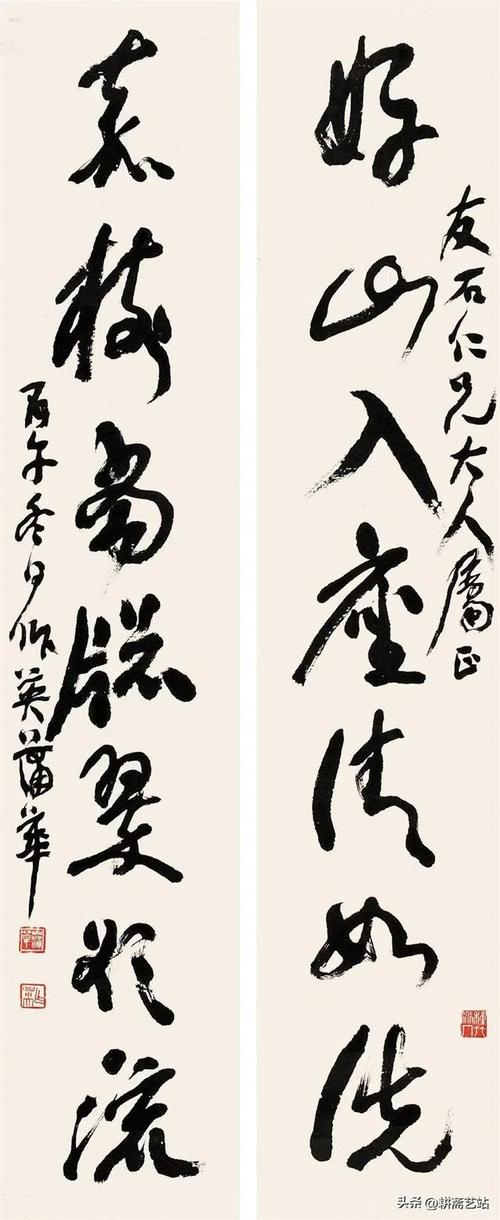 好山入座清如洗
友石仁兄大人属正
嘉树当窗翠欲流
丙午冬日作英蒲华
头条 @耕斋艺站